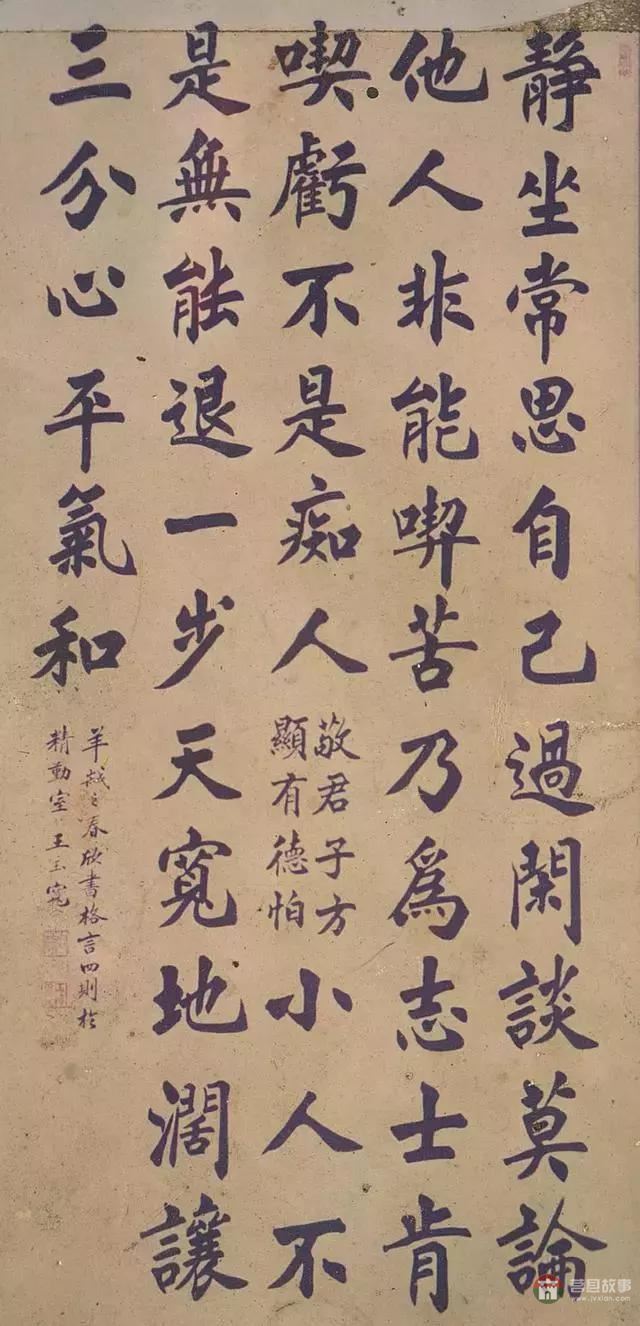 靜坐常思自己過閑談莫論
他人非能喫苦乃爲志士肯
喫虧不是痴人敬君子方顯有德怕小人不
是無能退一步天寬地濶讓
三分心平氣和
春欣書格言四則於
精勤室王玉
莒县故事
www.jvxian.com